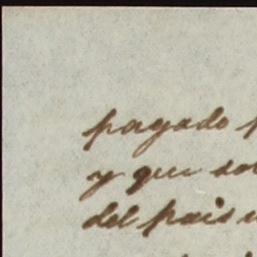 pagado
y que
del pais